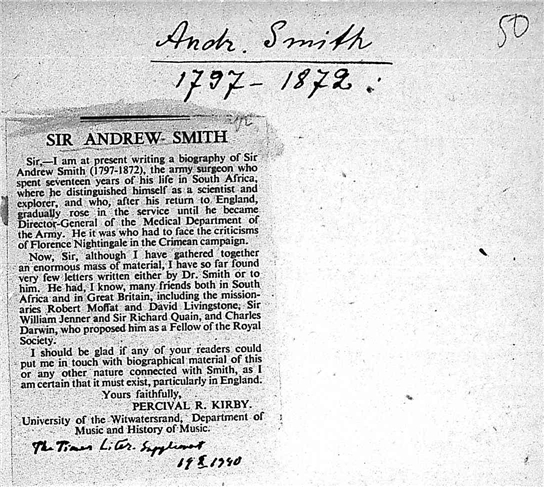 50
Andr. Smith
1797 - 1872 :
SIR ANDREW SMITH
Sir,—I am at present writing a biography of Sir
Andrew Smith (1797-1872), the army surgeon who
spent seventeen years of his life in South Africa,
where he distinguished himself as a scientist and
explorer, and who, after his return to England,
gradually rose in the service until he became
Director-General of the Medical Department of
the Army. He it was who had to face the criticisms
of Florence Nightingale in the Crimean campaign.
Now, Sir, although I have gathered together
an enormous mass of material, I have so far found
very few letters written either by Dr. Smith or to
him. He had, I know, many friends both in South
Africa and in Great Britain, including the mission-
aries Robert Moffat and David Livingstone, Sir
William Jenner and Sir Richard Quain, and Charles
Darwin, who proposed him as a Fellow of the Royal
Society.
I should be glad if any of your readers could
put me in touch with biographical material of this
or any other nature connected with Smith, as I
am certain that it must exist, particularly in England.
Yours faithfully,
PERCIVAL R. KIRBY.
University of the Witwatersrand, Department of
Music and History of Music.
The Times Liter. Supplement
19 X 1940